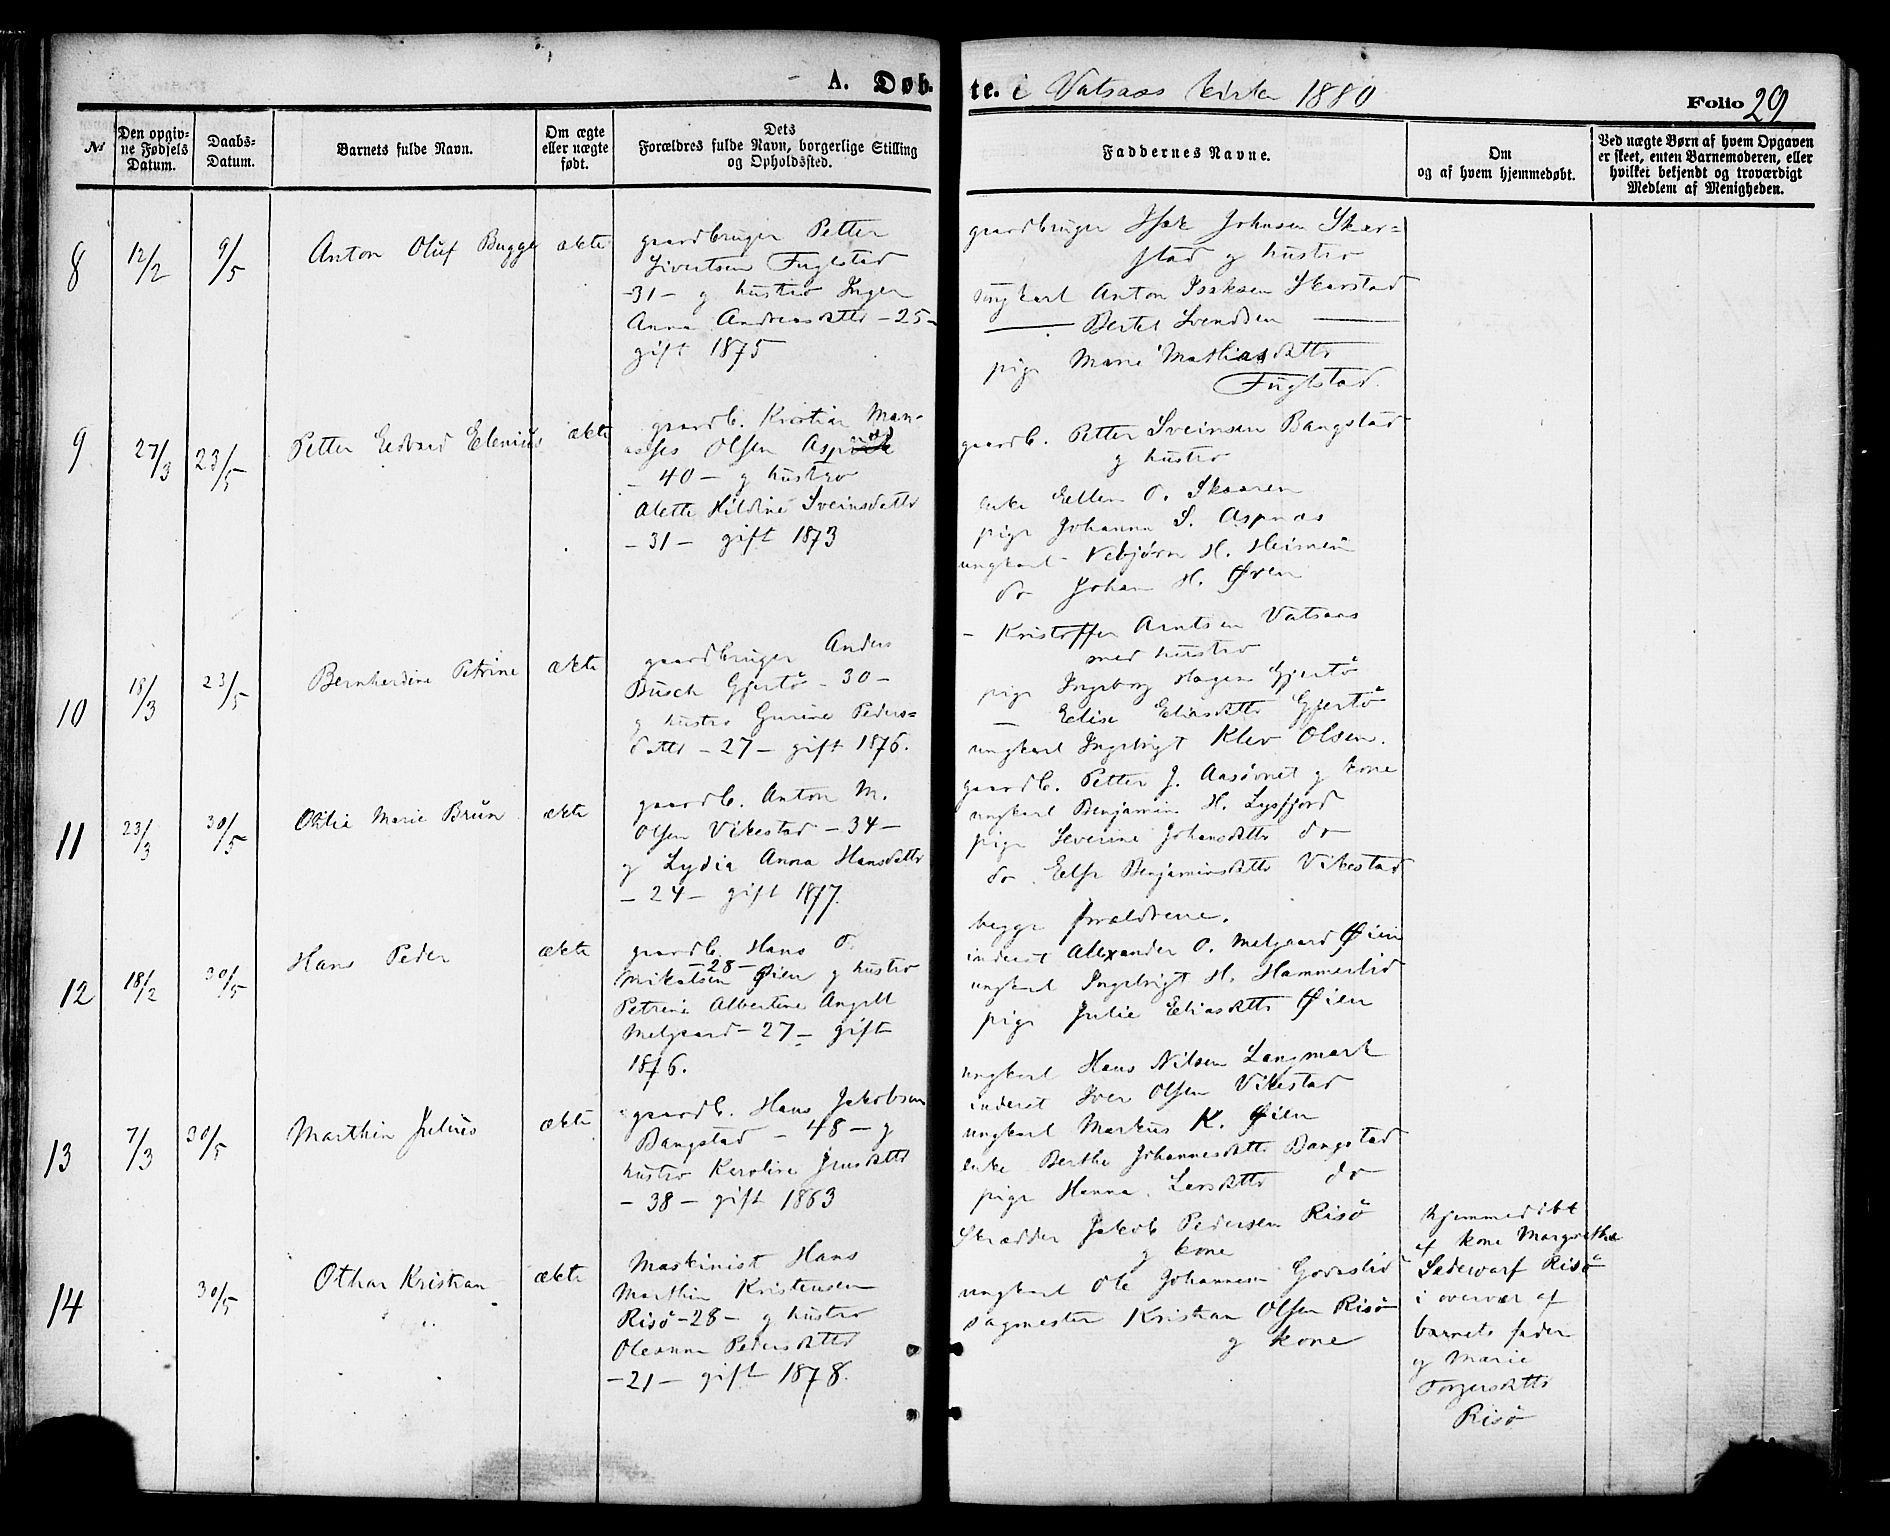 A. Døb-
te. i Vatsaas kirke 1880
Folio 29
№
Den opgiv-
ne Fødsels
Datum.
Daabs-
Datum.
Barnets fulde Navn.
Om ægte
eller uægte
født.
Dets
Forældres fulde Navn, borgerlige Stilling
og Opholdssted.
Faddernes Navne.
Om
og af hvem hjemmedøbt.
Ved uægte Børn af hvem Opgaven
er skeet, enten Barnemoderen, eller
hvilket bekjendt og troværdigt
Medlem af Menigheden.
8
12/2
9/5
Anton Oluf Bugge
ækte
gaardbruger Petter
Sivertsen Fuglstad
-31- og hustro Inger
Anna Andreasdattr -25-
gift 1875
gaardbruger Isak Johnsen Skar-
stad og hustro
ungkarl Anton Isaksen Skarstad
Bertel Svendsen
pige Marie Mathiasdattr
Fuglstad
9
27/3
23/5
Petter Edvard Elenius
ækte
gaardb. Kristian Man-
asses Olsen Aspnæs
- 40 - og hustro
Alette Hildine Sveinsdattr
- 31 - gift 1873
gaardb. Petter Sveinsen Bangstad
og hustro
enke Ellen O. Skaaren
pige Johanna S. Aspnæs
ungkarl Vebjørn H.
do Johan H. Øren
10
18/3
23/5
Bernhardine Petrine
ækte
gaardbruger Anders
Busch Gjertø - 30 -
og hustro Gurine Peders-
dattr - 27 - gift 1876.
- Kristoffer Arntsen Vatsaas
med hustro
pige Ingeborg Hagen Gjertø
— Elise Eliasdattr Gjertø
ungkarl Ingebrigt Klev Olsen.
11
23/3
30/5
Otilie Marie Brun
ækte
gaardb. Anton M.
Olsen Vikestad - 34 -
og Lydia Anna Hansdattr
- 24 - gift 1877.
gaardb. Petter J. Aasøvnet og kone
ungkarl Benjamin H. Lysfjord
pige Severine Johansdattr do
do Else Benjaminsdattr Vikestad
12
18/2
30/5
Hans Peder
ækte
gaardb. Hans O.
-28-
Mikalsen Øien og hustro
Petrine Albertine Angell
Melgaard - 27 - gift
1876.
begge forældrene.
inderst Alexander O. Melgaard Øien
ungkarl Ingebrigt H. Hammerlid
pige Julie Eliasdattr Øien
13
7/3
30/5
Marthin Julius
ækte
gaardb. Hans Jakobsen
Bangstad - 48 - og
hustro Karoline Jensdattr
- 38 - gift 1863
ungkarl Hans Nilsen Langmark
inderst Iver Olsen Vikestad
ungkarl Markus K. Øien
enke Berthe Johannesdattr Bangstad
pige Hanna Larsdattr do
14
30/5
Othar Kristian
ækte
Maskinist Hans
Marthin Kristensen
Risö -28- og hustro
Oleanna Pedersdattr
- 21 - gift 1878.
Skrædder Jakob Pedersen Risö
og kone
ungkarl Ole Johannesen Godeslid
sagmester Kristian Olsen Risö
og kone
hjemmedöbt
af kone Margrethe
Sedewarf Risö
i overvær af
barnets fader
og Marie
Torgersdattr
Risö